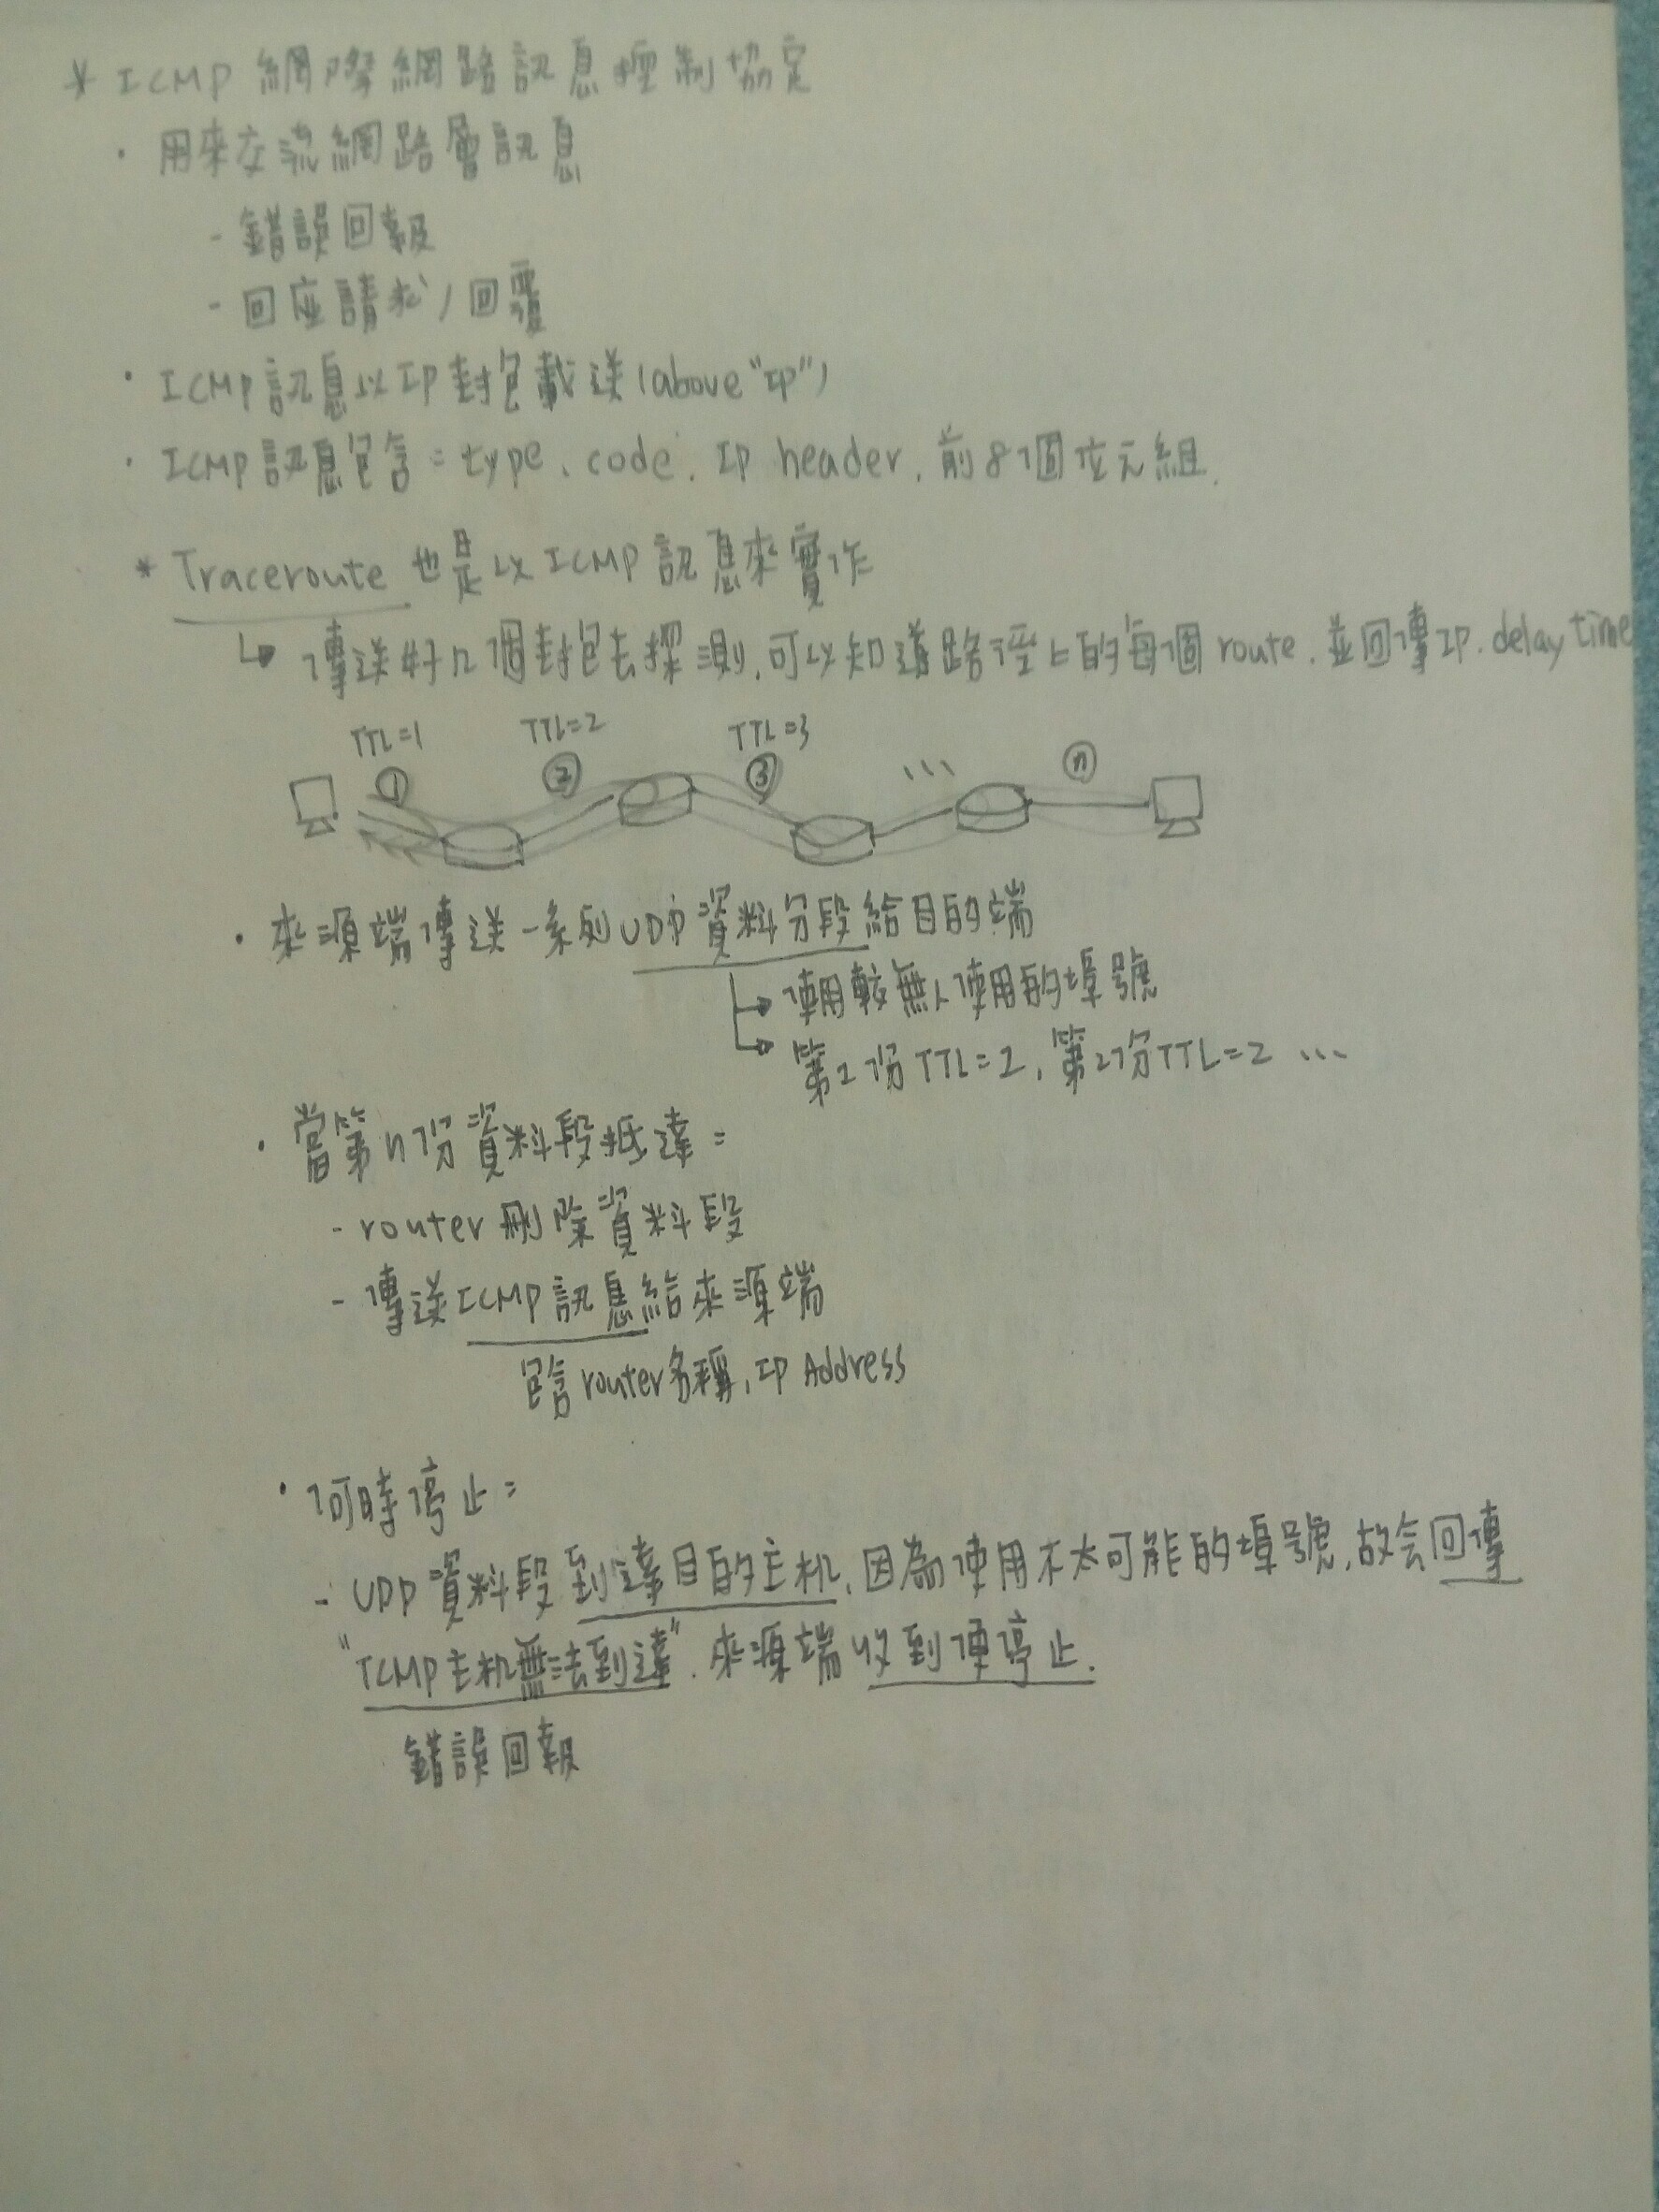 * ICMP 網際網路訊息控制協定
· 用來交流網路層訊息
- 錯誤回報
- 回應請求/回覆
· ICMP訊息以IP封包載送(above "IP")
· ICMP訊息包含: type、code、IP header、前8個位元組.
* Traceroute 也是以ICMP訊息來實作
↳ 傳送好n個封包去探測,可以知道路徑上的每個route,並回傳IP.delay time
TTL=1 TTL=2 TTL=3
① ② ③ ... ⓝ
· 來源端傳送一系列UDP資料分段給目的端
↳ 使用較無人使用的埠號
↳ 第1份TTL=1,第2份TTL=2 ...
· 當第n份資料段抵達:
- router刪除資料段
- 傳送ICMP訊息給來源端
包含router名稱,IP Address
· 何時停止:
- UDP資料段到達目的主机,因為使用不太可能的埠號,故会回傳
"ICMP主机無法到達".來源端收到便停止.
錯誤回報